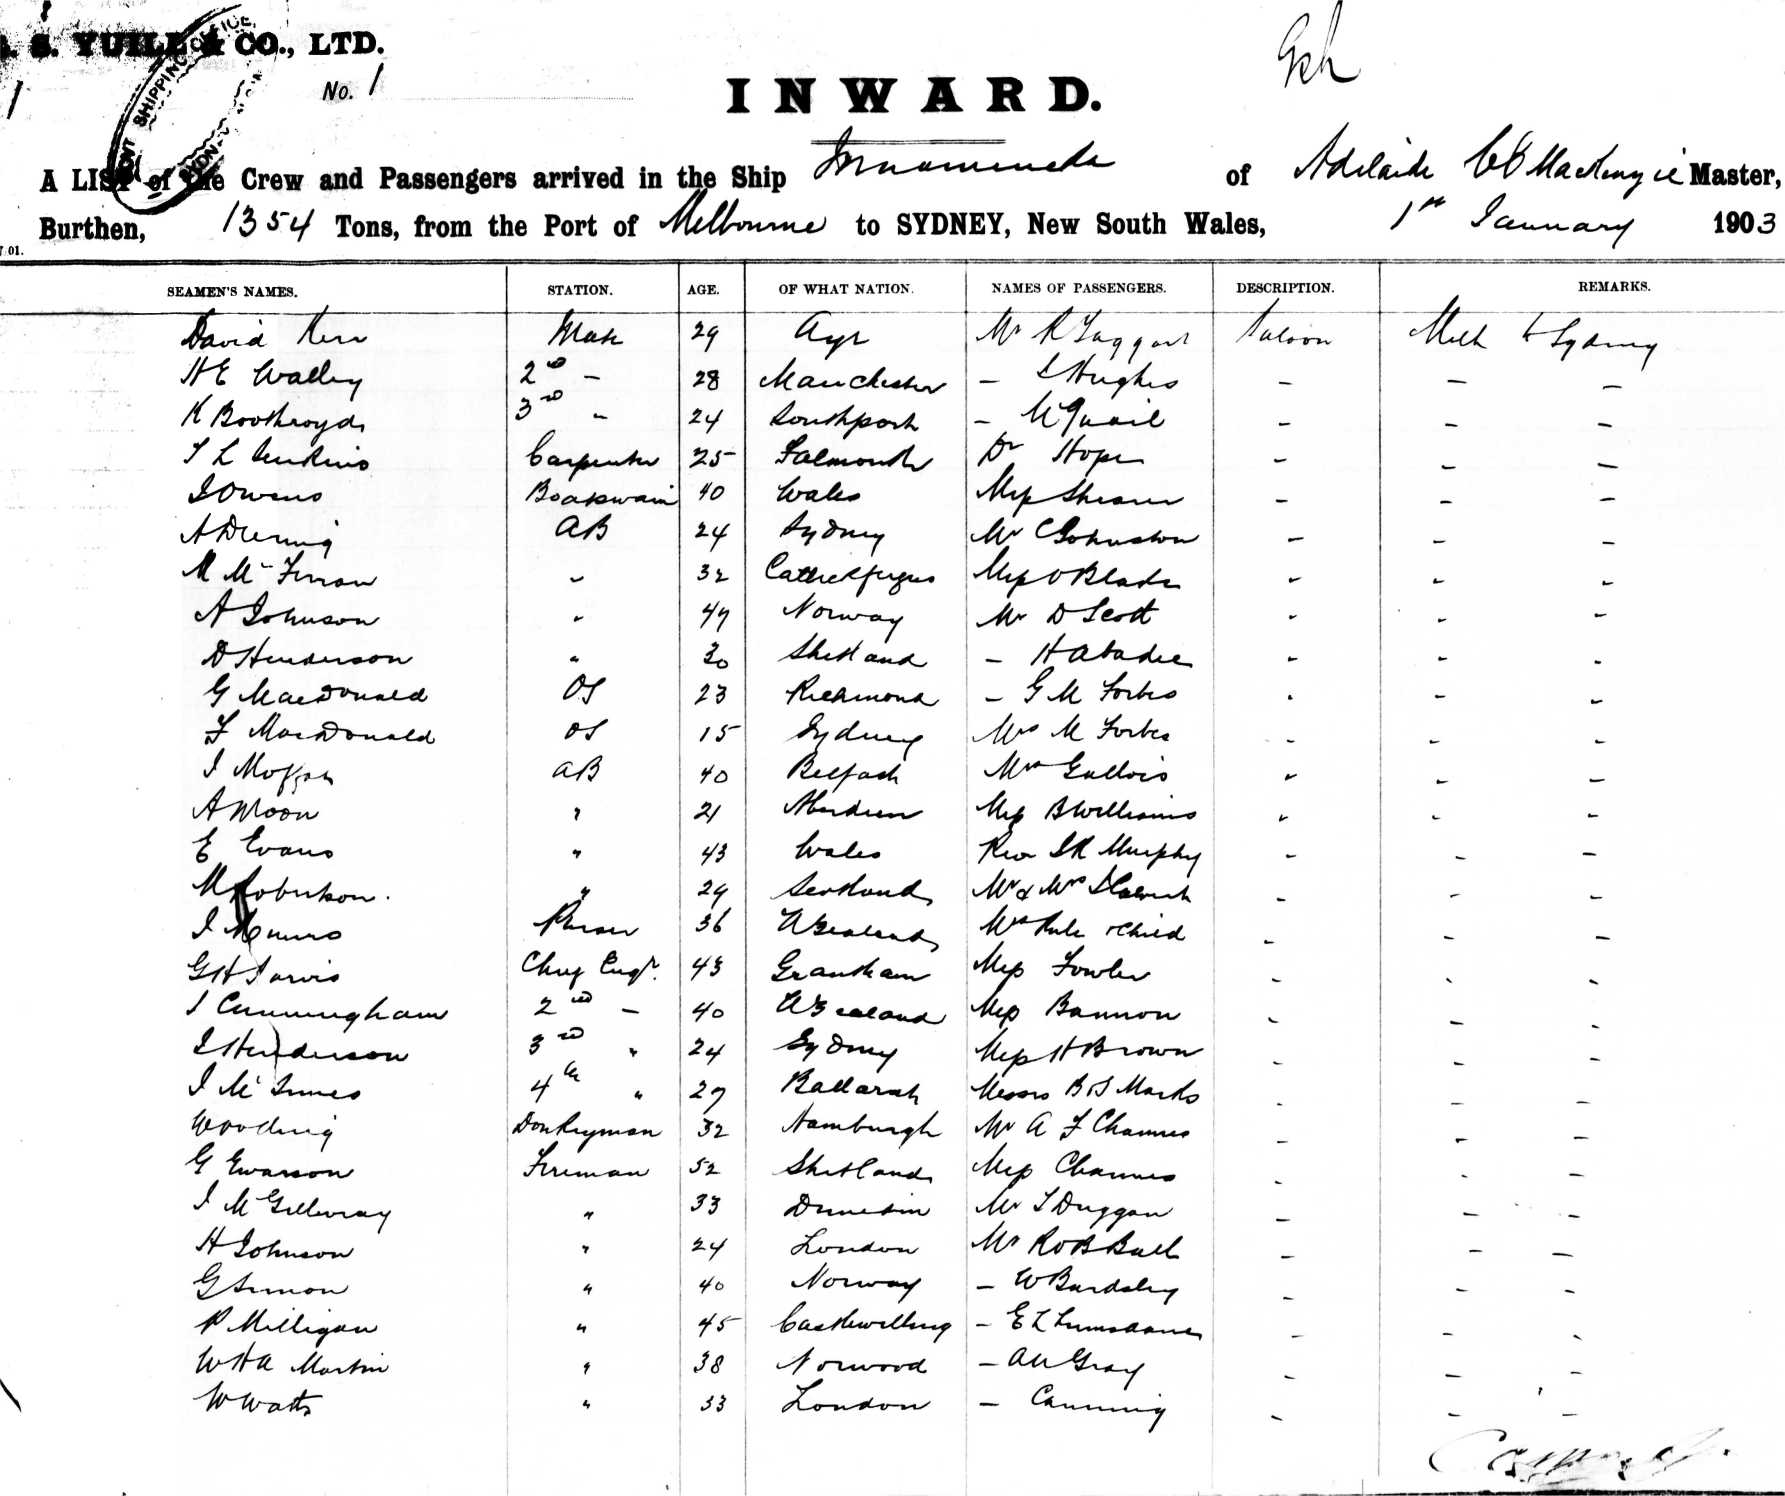 S. YUILL & CO., LTD.
No. 1
INWARD.
A LIST of the Crew and Passengers arrived in the Ship Innamincka of Adelaide MacKenzie Master,
Burthen, 1354 Tons, from the Port of Melbourne to SYDNEY, New South Wales, 1st January 1903
SEAMEN'S NAMES. STATION. AGE. OF WHAT NATION. NAMES OF PASSENGERS. DESCRIPTION. REMARKS.
David Kerr Mate 29 Ayr Mr R Taggart Saloon Melb to Sydney
H E Walley 2nd - 28 Manchester - Hughes - - -
K Boothroyd 3rd " 24 Southport - McQuail - - -
Jenkins Carpenter 25 Falmouth Dr Hope - - -
J Owens Boatswain 40 Wales Miss Shearer - - -
A Deering AB 24 Sydney Mr C Johnston - - -
M McFerran " 32 Miss Blade - - -
A Johnson " 47 Norway Mr D Scott - - -
D Henderson " 30 Shetland - H Abadee - - -
G MacDonald OS 23 Richmond - G M Forbes - - -
F MacDonald OS 15 Sydney Mrs M Forbes - - -
J Moffat AB 40 Belfast Mrs Gallois - - -
A Moon " 21 Aberdeen Miss B Williams - - -
E Evans " 43 Wales Rev J R Murphy - - -
M Robertson. " 29 Scotland Mr & Mrs - - -
J Munro Purser 36 N Zealand Mrs & Child - - -
G H Jarvis Chief Engr. 43 Grantham Miss Fowler - - -
J Cunningham 2nd - 40 N Zealand Miss Bannon - - -
J Henderson 3rd " 24 Sydney Miss H Brown - - -
J McInnes 4th " 27 Ballarat Messrs B S Marks - - -
Wooding Donkeyman 32 Hamburgh Mr A F Channes - - -
G Ewanson Fireman 52 Shetland Miss Channes - - -
J McGillivray " 33 Dunedin Mr T Duggan - - -
H Johnson " 24 London Mr R O B Ball - - -
G Simon " 40 Norway - W Bardsley - - -
P Milligan " 45 Castlewelling - E L Lumsdaine - - -
W H A Martin " 38 Norwood - A W Gray - - -
W Watts " 33 London - Canning - - -